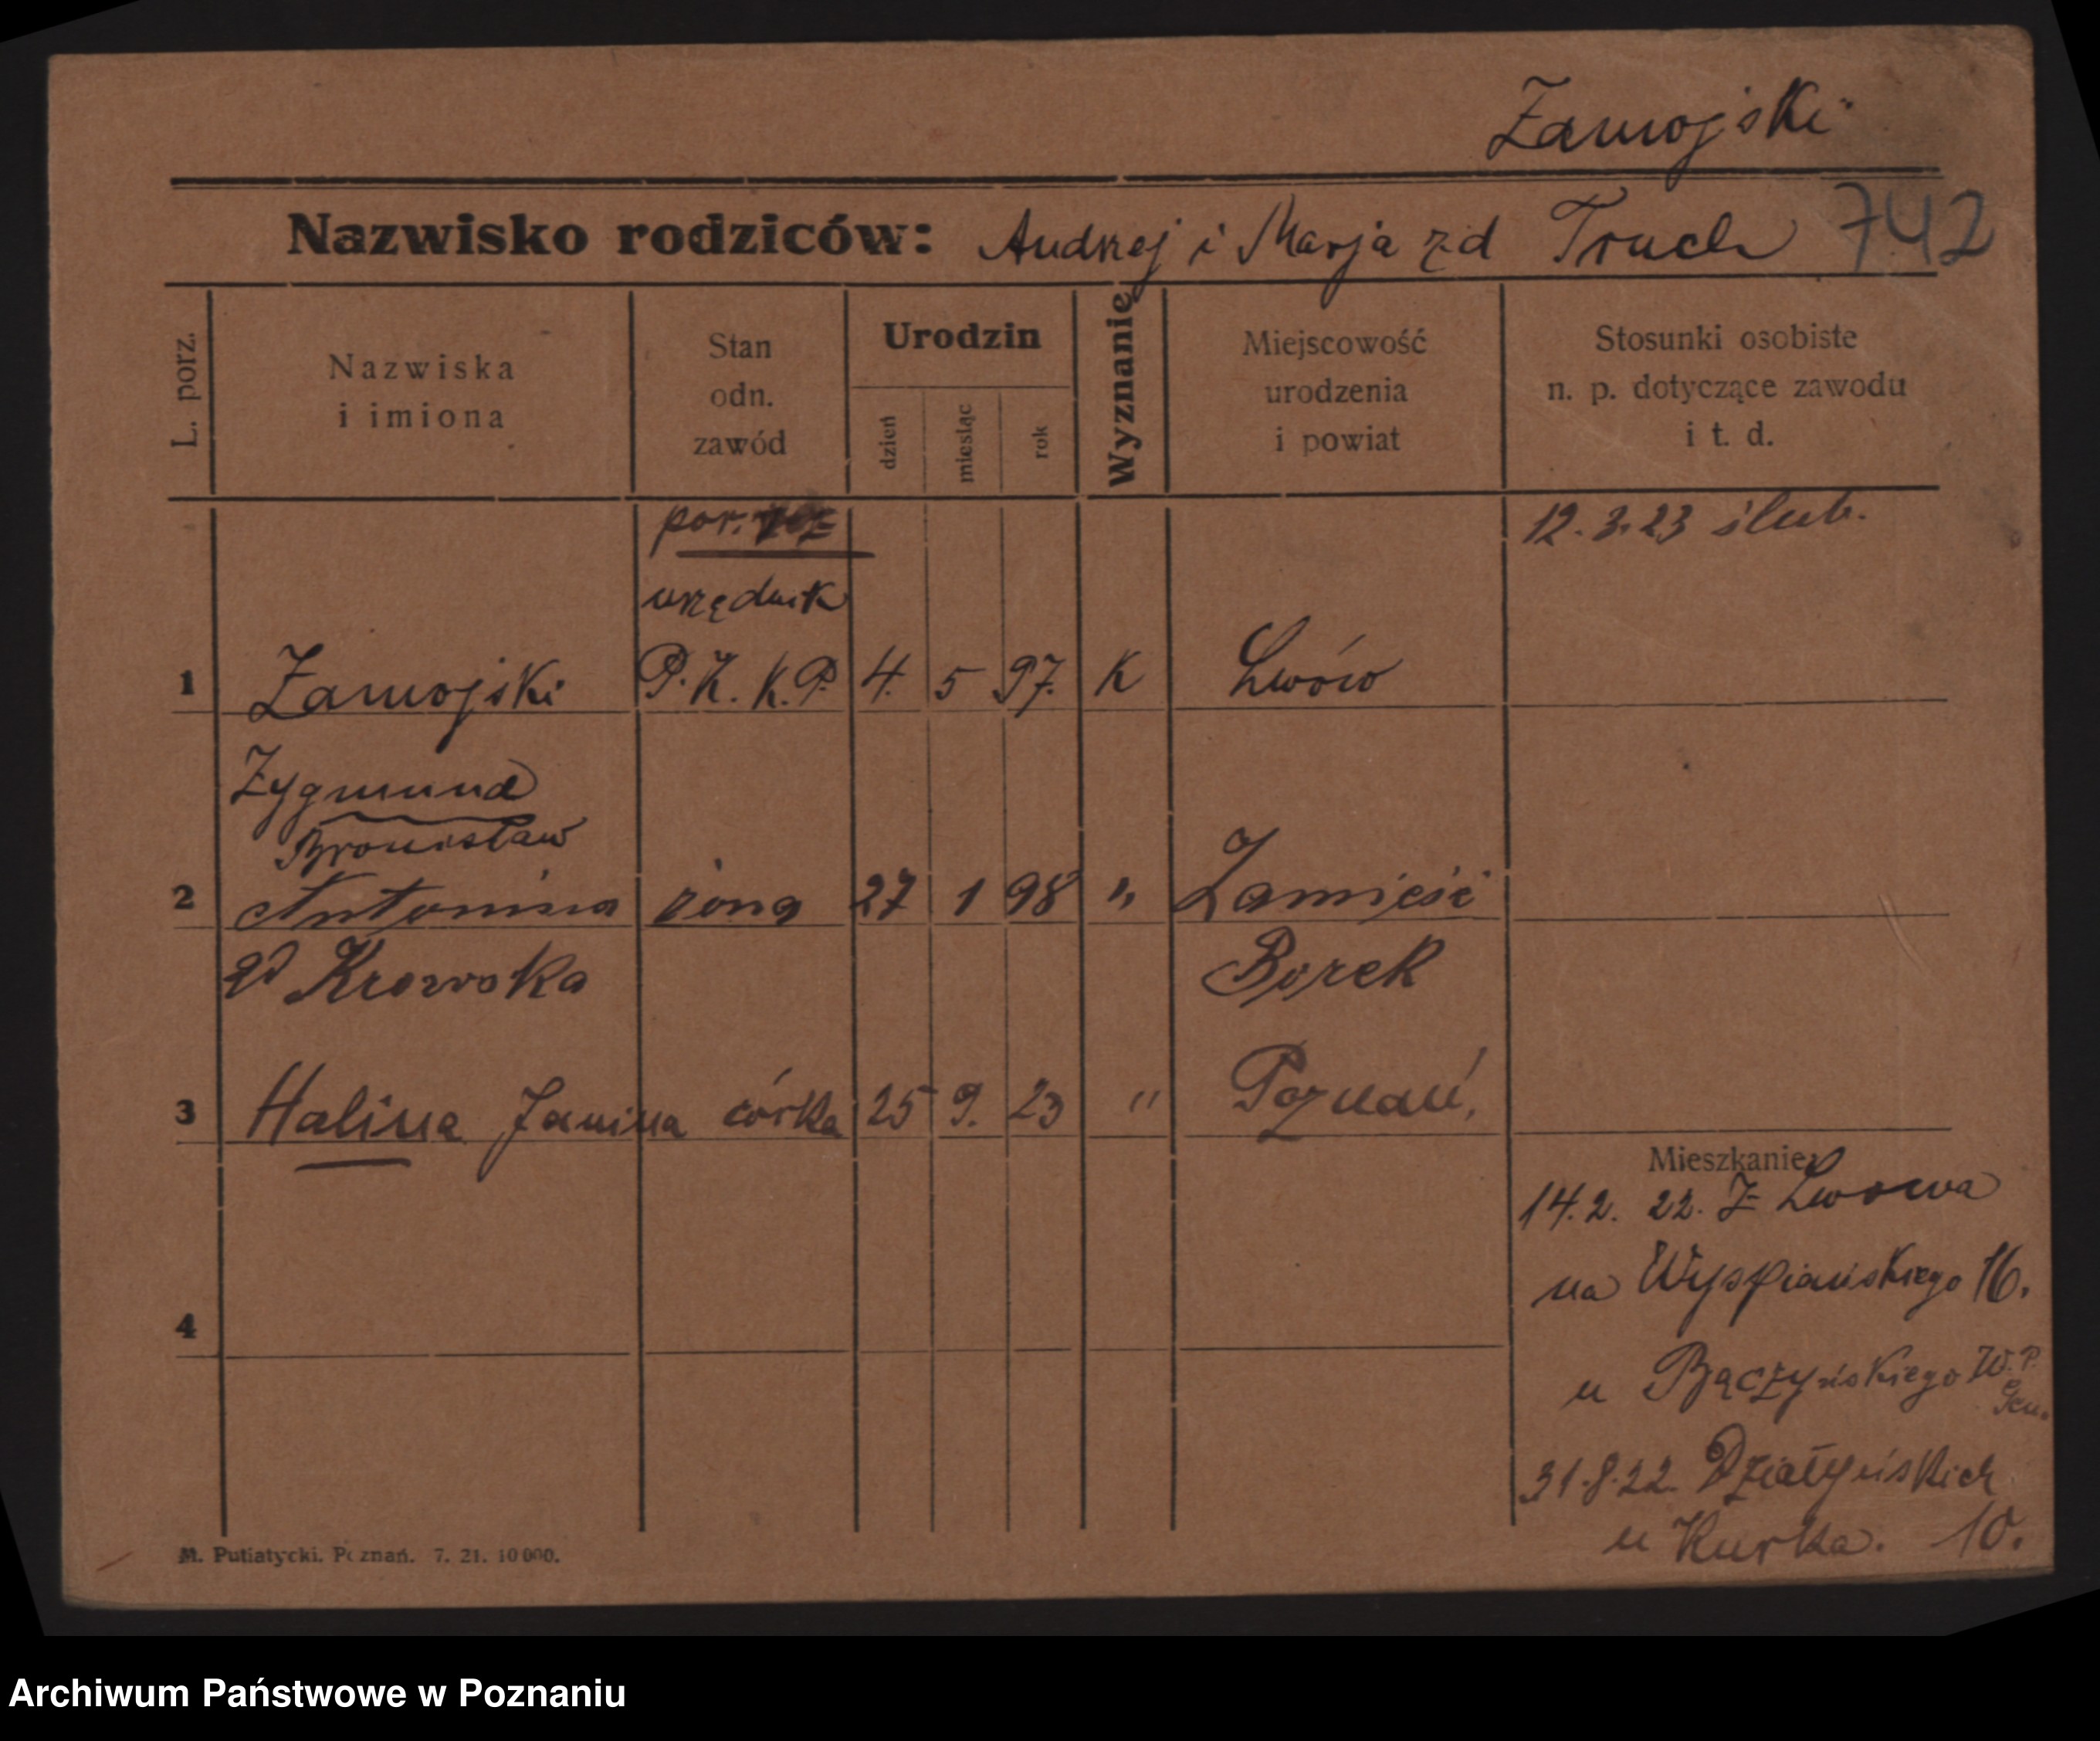 Zamojski
Nazwisko rodziców: Andrzej i Marja zd Truch 742
L. porz.
Nazwiska
i imiona
Stan
odn.
zawód
Urodzin
dzień
miesiąc
rok
Wyznanie
Miejscowość
urodzenia
i powiat
Stosunki osobiste
n. p. dotyczące zawodu
i t. d.
por.
12.3.23 ślub.
urzędnik
1 Zamojski P.K.K.P. 4. 5 97. K Lwów
Zygmund
Bronisław
2 Antonina żona 27 1 98 " Zamieść
zd Borek
3 Halina Janina córka 25 9. 23 " Poznań,
Mieszkanie:
14.2. 22. Z Lwowa
na Wyspiańskiego 16.
u Bączyńskiego W.P.
Gen.
31.8.22. Działyńskich
u Kurka. 10.
4
M. Putiatycki. Poznań. 7. 21. 10000.
Archiwum Państwowe w Poznaniu